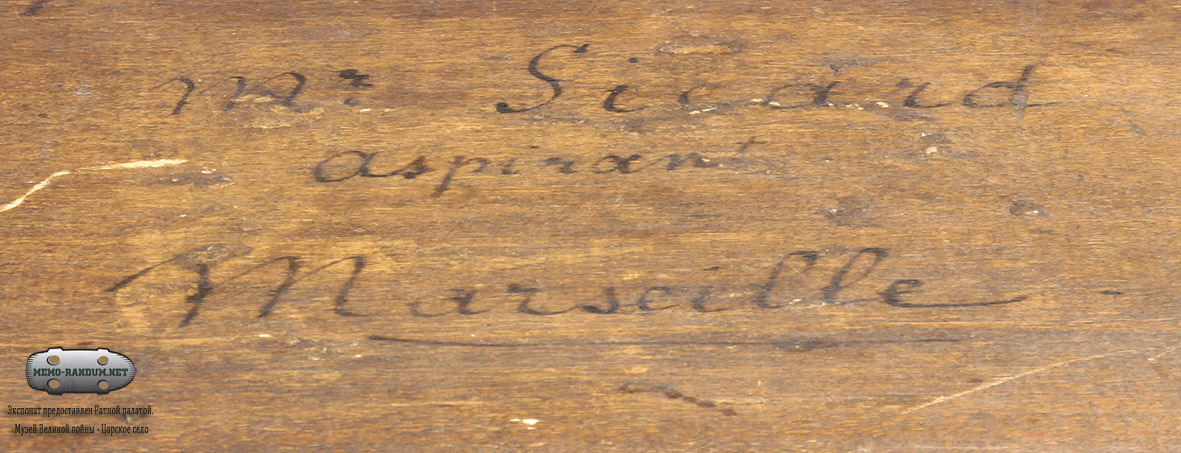 Mr Sicard
aspirant
Marseille
MEMO-RANDUM.NET
Экспонат предоставлен Ратной палатой.
Музей Великой войны - Царское село